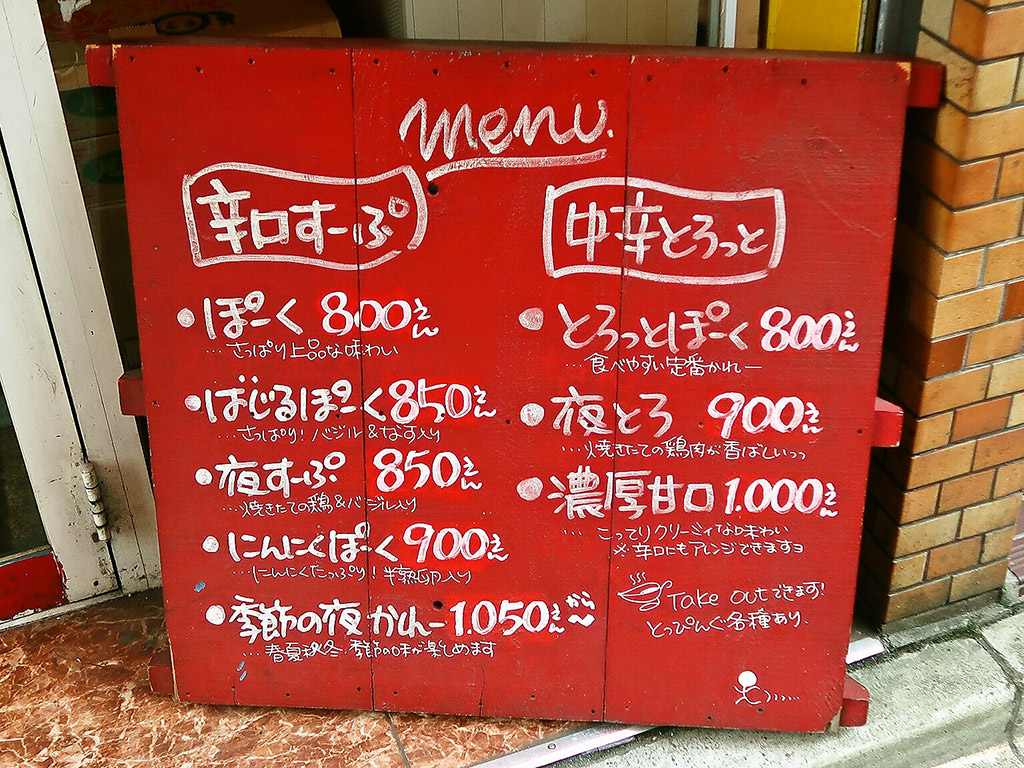 menu.
辛口すーぷ
・ぽーく 800えん
…さっぱり上品な味わい
・ばじるぽーく 850えん
…さっぱり!バジル&なす入り
・夜すーぷ 850えん
…焼きたての鶏&バジル入り
・にんにくぽーく 900えん
…にんにくたっぷり!半熟卵入り
・季節の夜かれー 1.050えんから〜
…春夏秋冬、季節の味が楽しめます
中辛とろっと
・とろっとぽーく 800えん
…食べやすい定番かれー
・夜とろ 900えん
…焼きたての鶏肉が香ばしいっっ
・濃厚甘口 1.000えん
…こってりクリーミィな味わい
※辛口にもアレンジできますヨ
Take outできます!
とっぴんぐ各種あり。